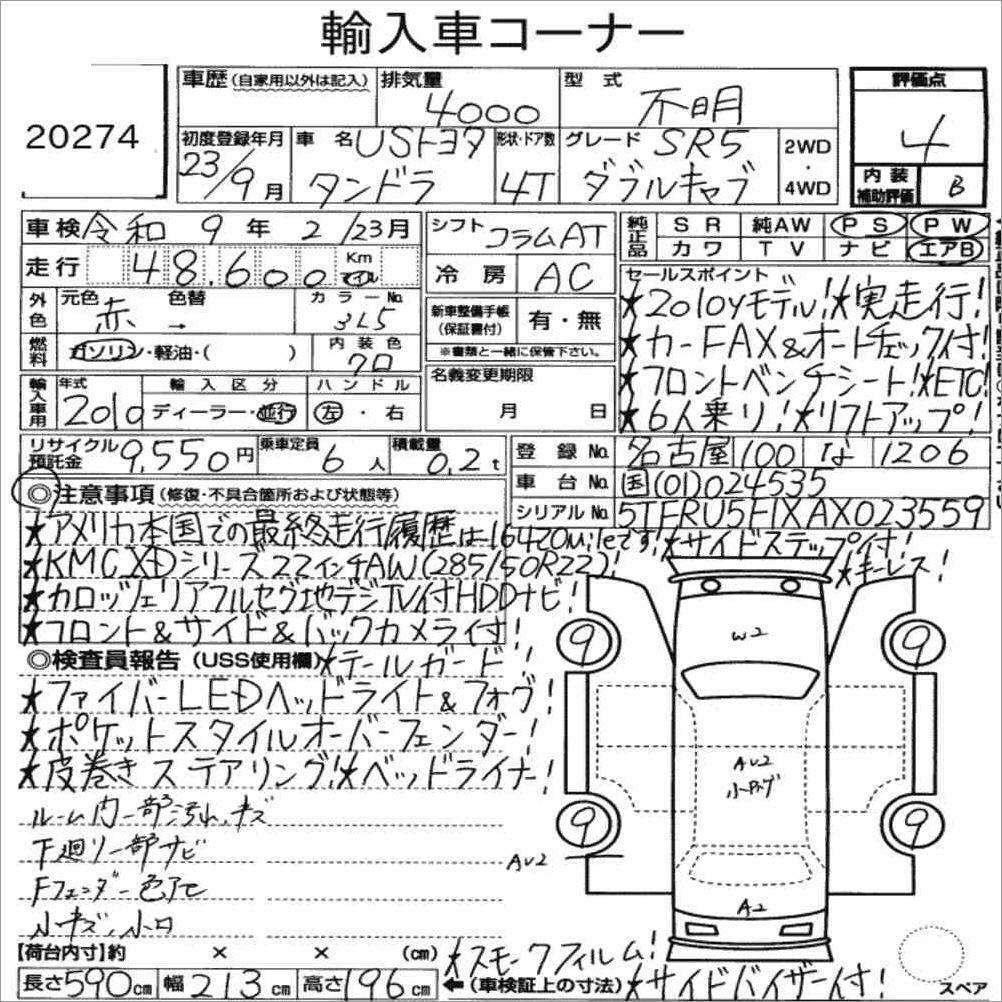 輸入車コーナー
20274
車歴(自家用以外は記入) 排気量 4000 型式 不明 評価点 4
初度登録年月 23/9月 車名 USトヨタ タンドラ 形状・ドア数 4T グレード SR5 ダブルキャブ 2WD・4WD 内装補助評価 B
車検 令和 9年 2/23月 シフト コラムAT 純正品 SR 純AW PS PW
カワ TV ナビ エアB
走行 48,600 Km マイル 冷房 AC
外色 元色 赤 色替 → カラーNo. 3L5 新車整備手帳(保証書付) 有・無
※書類と一緒に保管下さい。
燃料 ガソリン・軽油・( ) 内装色 クロ
セールスポイント
★2010yモデル!★実走行!
★カーFAX&オートチェック付!
★フロントベンチシート!★ETC!
★6人乗り!★リフトアップ!
輸入車用 年式 2010 輸入区分 ディーラー・並行 ハンドル 左・右 名義変更期限 月 日
リサイクル預託金 9,550円 乗車定員 6人 積載量 0.2t
登録No. 名古屋 100 な 1206
車台No. 国(01)024535
シリアルNo. 5TFRU5F1XAX023559
◎注意事項(修復・不具合箇所および状態等)
★アメリカ本国での最終走行履歴は16420mileです!★サイドステップ付!
★KMC XDシリーズ22インチAW(285/50R22)! ★キーレス!
★カロッツェリアフルセグ地デジTV付HDDナビ!
★フロント&サイド&バックカメラ付!
◎検査員報告(USS使用欄)★テールガード!
★ファイバーLEDヘッドライト&フォグ!
★ポケットスタイルオーバーフェンダー!
★皮巻きステアリング!★ベッドライナー!
ルーム内一部汚れ、キズ
下廻り一部サビ
Fフェンダー色アセ
小キズ、小凹
9 9
W2
AU2
9 9
AU2
A2
【荷台内寸】約 × × (cm)
★スモークフィルム!
長さ590cm 幅213cm 高さ196cm ←(車検証上の寸法)★サイドバイザー付!
スペア